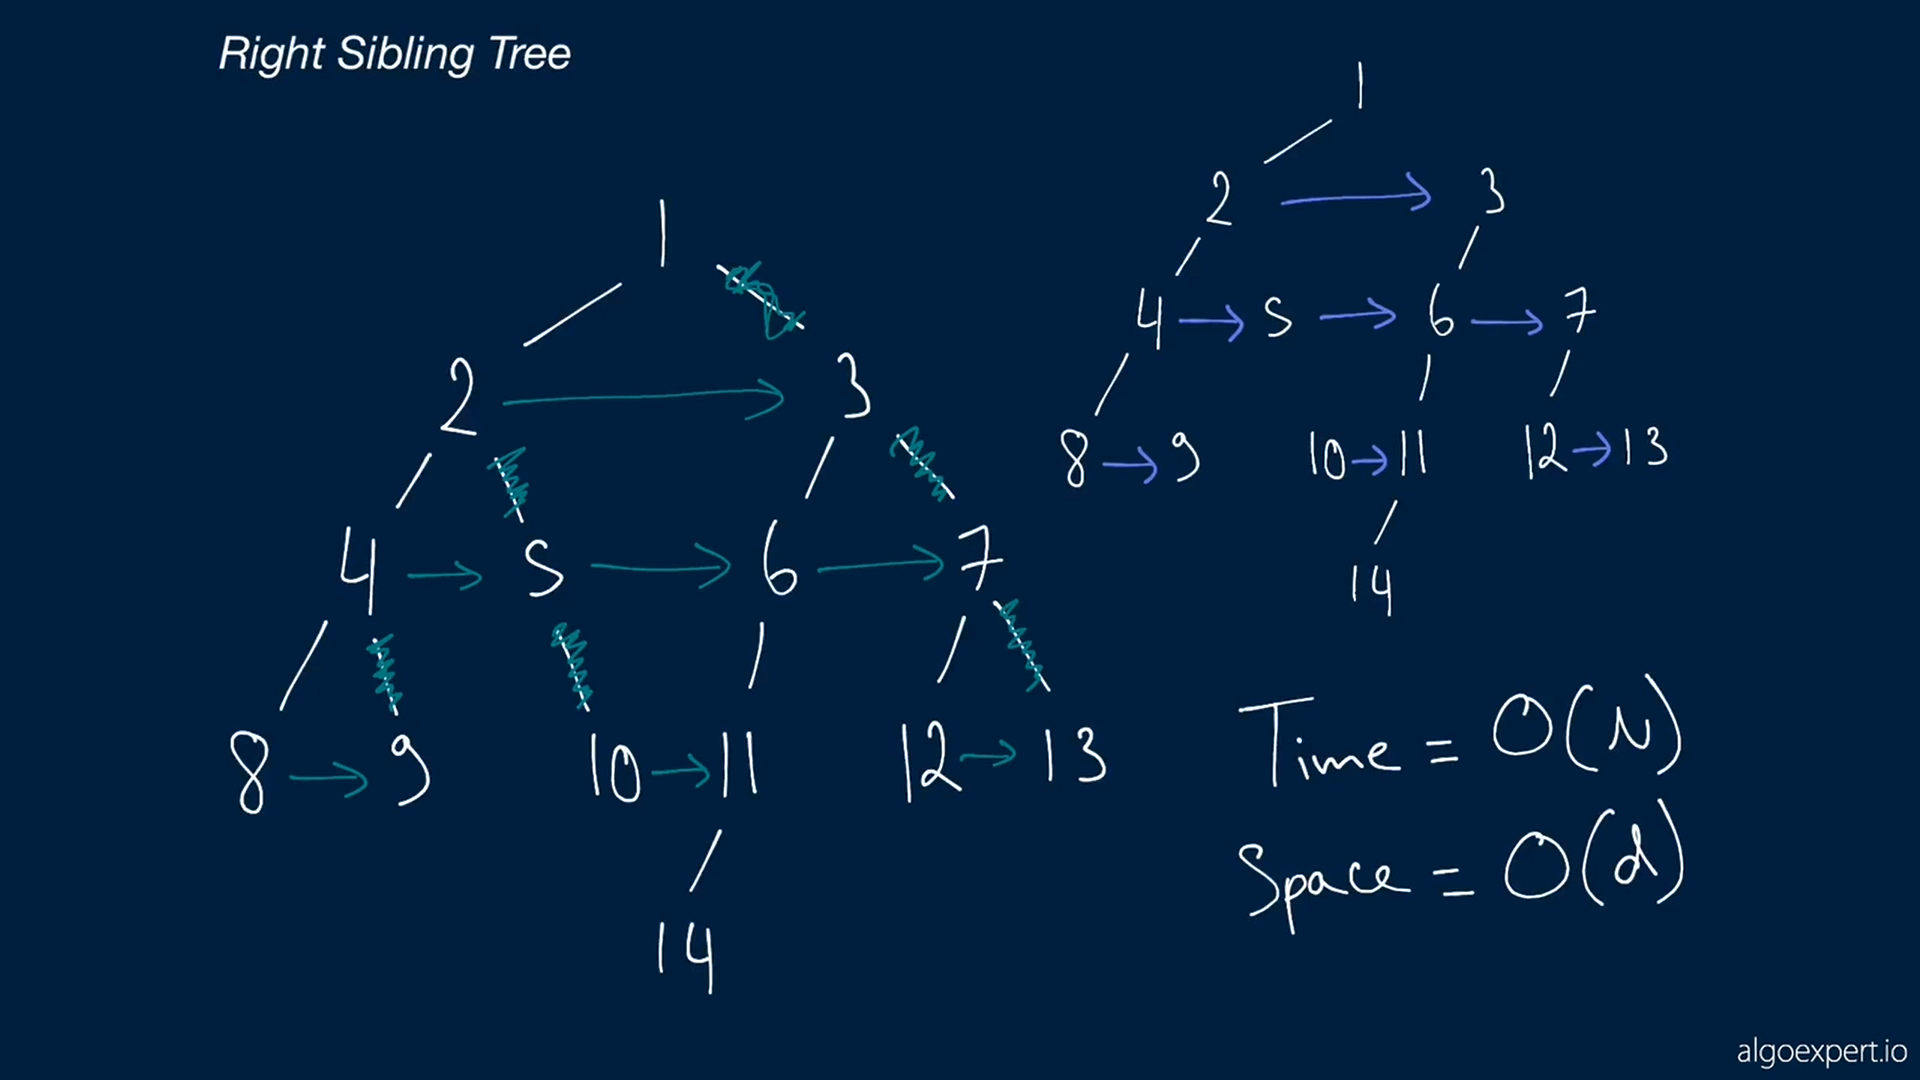 Right Sibling Tree
1
2 → 3
4 → 5 → 6 → 7
8 → 9 10 → 11 12 → 13
14
1
2 → 3
4 → 5 → 6 → 7
8 → 9 10 → 11 12 → 13
14
Time = O(N)
Space = O(d)
algoexpert.io